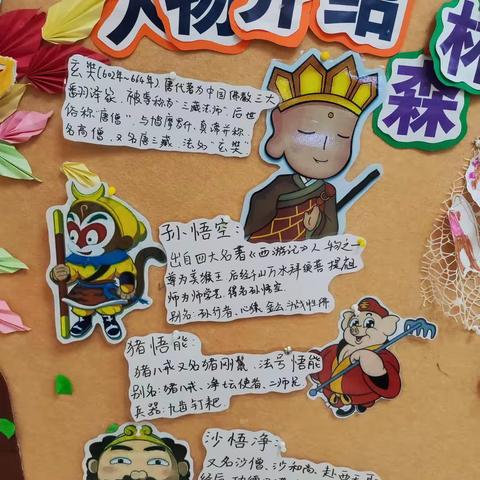 人物介绍
森林
玄奘(602年~664年) 唐代著为中国佛教三大
翻译家, 被尊称为"三藏法师", 后世
俗称"唐僧", 与鸠摩罗什、真谛并称
名高僧, 又名唐三藏, 法名"玄奘"
孙悟空:
出自四大名著《西游记》人物之一
尊为美猴王 后经千山万水拜
师为师学艺, 得名孙悟空.
别名: 孙行者、心猿、金公、斗战胜佛
猪悟能:
猪八戒又名猪刚鬣, 法号悟能
别名: 猪八戒、净坛使者、二师兄
兵器: 九齿钉耙
沙悟净:
又名沙僧、沙和尚, 赴西天